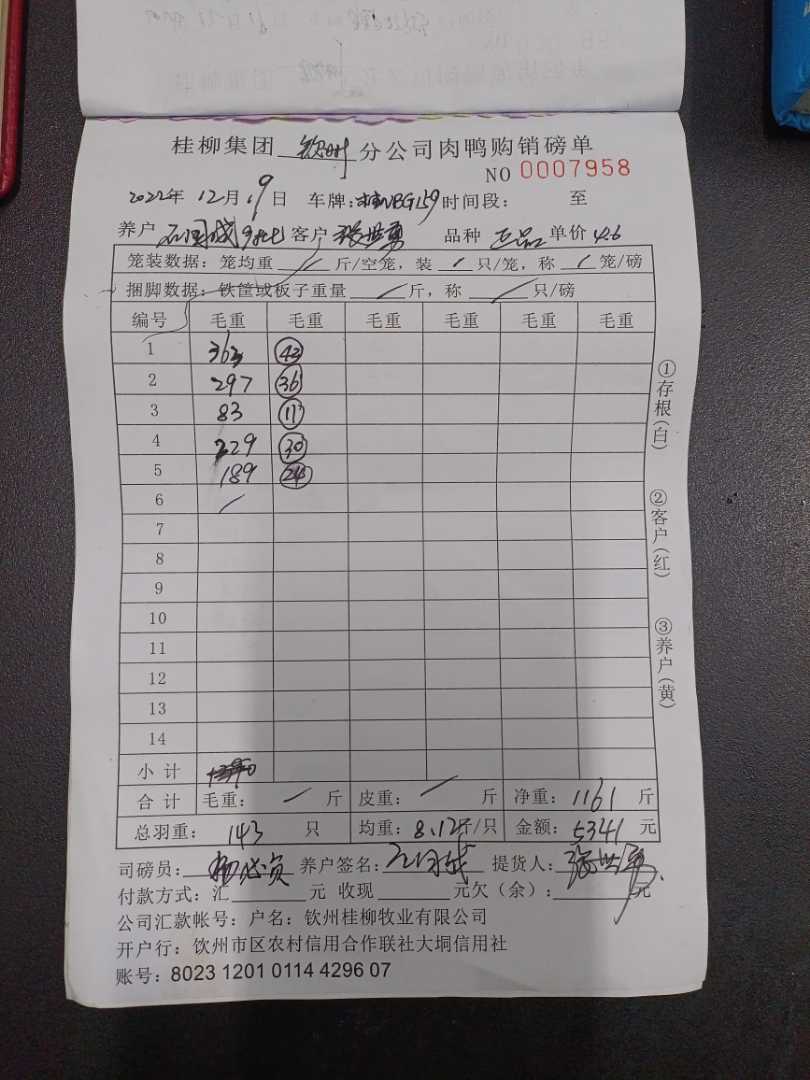 桂柳集团 钦州 分公司肉鸭购销磅单
NO 0007958
2022年 12月 19日 车牌: 时间段: 至
养户 石国成 客户 张世勇 品种 正品 单价 4.6
笼装数据: 笼均重 / 斤/空笼, 装 / 只/笼, 称 / 笼/磅
捆脚数据: 铁筐或板子重量 / 斤, 称 / 只/磅
编号 毛重 毛重 毛重 毛重 毛重 毛重
1 363 43
2 297 36
3 83 11
4 229 30
5 189 24
6 /
7
8
9
10
11
12
13
14
小计
合计 毛重: / 斤 皮重: / 斤 净重: 1161 斤
总羽重: 143 只 均重: 8.12斤/只 金额: 5341 元
司磅员: 养户签名: 石国成 提货人: 张世勇
付款方式: 汇 元 收现 元欠(余): 元
公司汇款帐号: 户名: 钦州桂柳牧业有限公司
开户行: 饮州市区农村信用合作联社大垌信用社
账号: 8023 1201 0114 4296 07
①存根(白)
②客户(红)
③养户(黄)